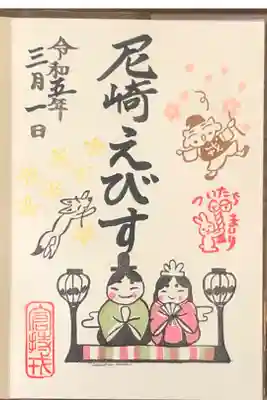 ついたち
まいり
尼崎えびす
令和五年
三月一日